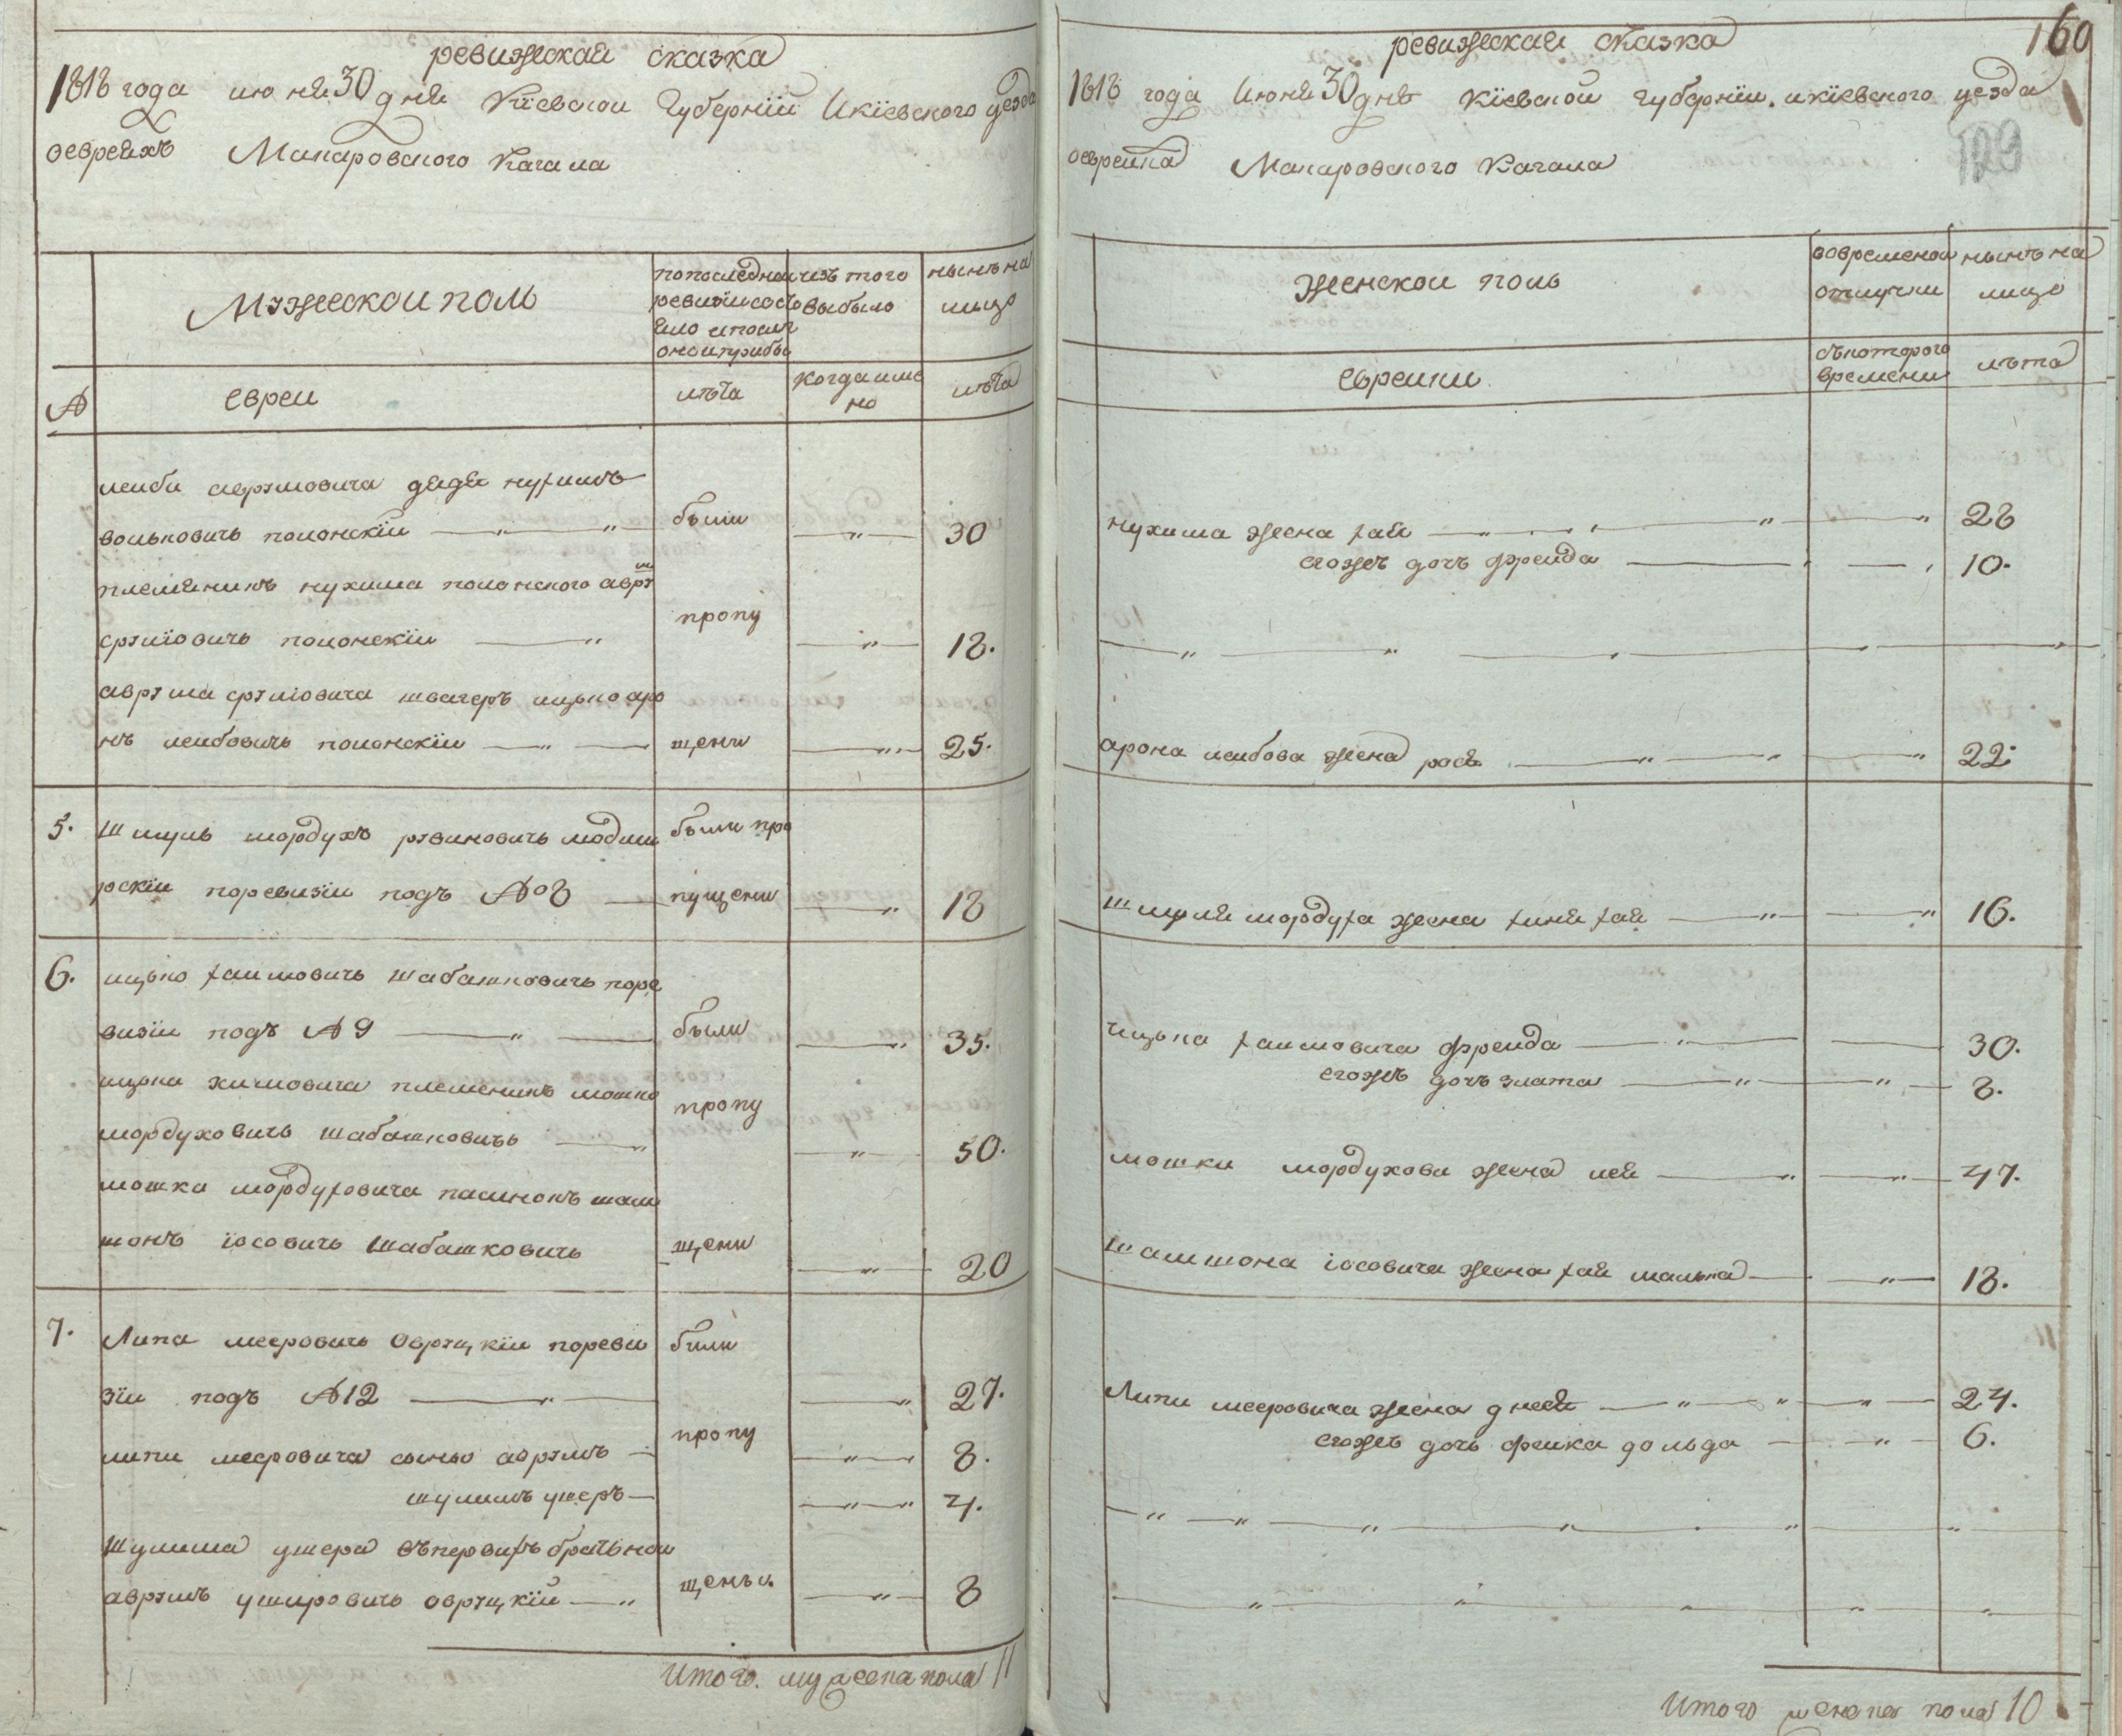 ревижскай сказка
1818 года июня 30 дня Киевской Губернїи Икїевского уезда
оевреяхъ Макаровского Кагала
Мужескои полъ
попоследней ревизїи состо
изъ того выбыло
нынѣ на лицо
№
евреи
лѣта
Когда име но
лѣта
лейби аврумовича дядя нухимъ
вольковичь полонскїй были " 30
племяникъ нухима полонского аврумъ
срулïовичь полонскїй пропу " 18.
аврума срулïовича швагеръ ицько аро
нъ лейбовичь полонскїй щени " 25.
5. Шмуль мордухъ рувиновичь
рскїй поревизїи подъ №8 были пропущени " 18
6. ицько хаимовичь шабашковичь поре
визїи подъ №9 были " 35.
ицька химовича племеникъ мошко пропу
мордуховичь шабашковичь " 50.
мошка мордуховича пасинокъ шам
шонъ їосовичь шабашковичь щени " 20
7. Липа мееровичь Овруцкїй пореви были
зїи подъ №12 " 27.
липи мееровича сыны аврумъ пропу " 8.
шулимъ ушеръ " 4.
Шулима ушера въпервихъ братьной
аврумъ ушировичь овруцкїй щены. " 8
Итого. мужеска пола 11
160
ревижскай сказка
1818 года Июня 30 дня Кїевской губернїи. икїевского уезда
оеврейка Макаровского Кагала
женскои полъ
вовременой отлучки
нынѣ на лицо
еврейки
съкоторого времени
лѣта
нухима жена хая " 28
егожъ дочь фрейда " 10.
арона лейбова жена рося " 22.
Шмуля мордуха жена хиня хая " 16.
ицька хаимовича фрейда 30.
егожъ дочь злата " 8.
мошки мордухова жена лея " 47.
Шамшона їосовича жена хая малька " 18.
Липи мееровича жена двося " 24.
егожъ дочь фейка гольда " 6.
Итого женска пола 10